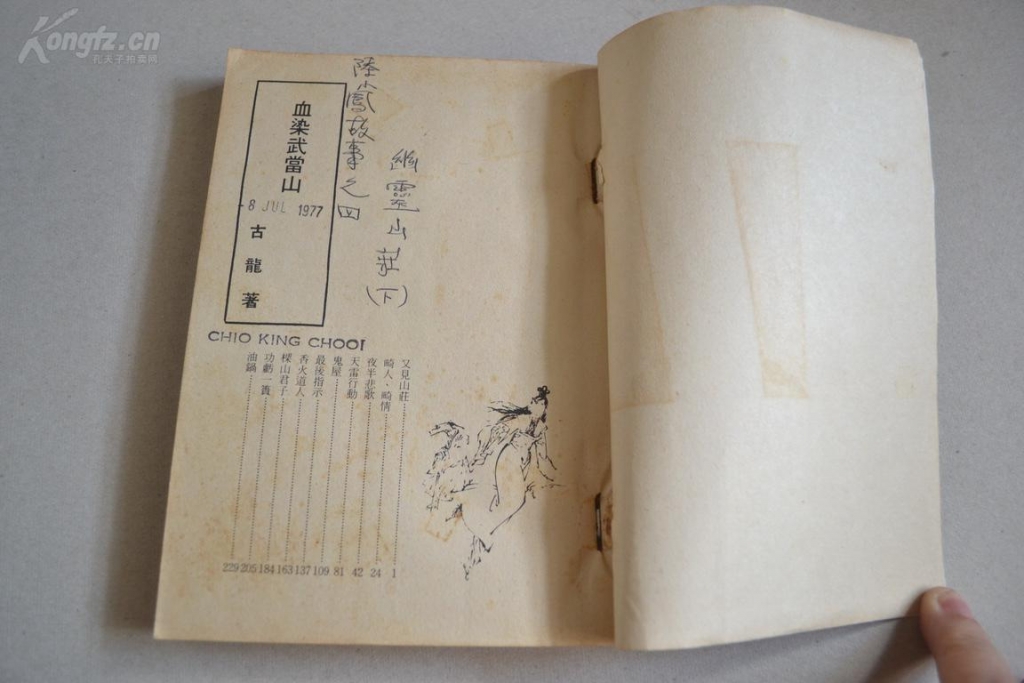 Kongfz.cn
孔夫子拍卖网
陸小鳳故事之四
幽靈山莊
(下)
血染武當山
-8 JUL 1977
古龍著
CHIO KING CHOOI
又見山莊 1
畸人・畸情 24
夜半悲歌 42
天雷行動 81
鬼屋 109
最後指示 137
香火道人 163
樑山君子 184
功虧一簣 205
油鍋 229